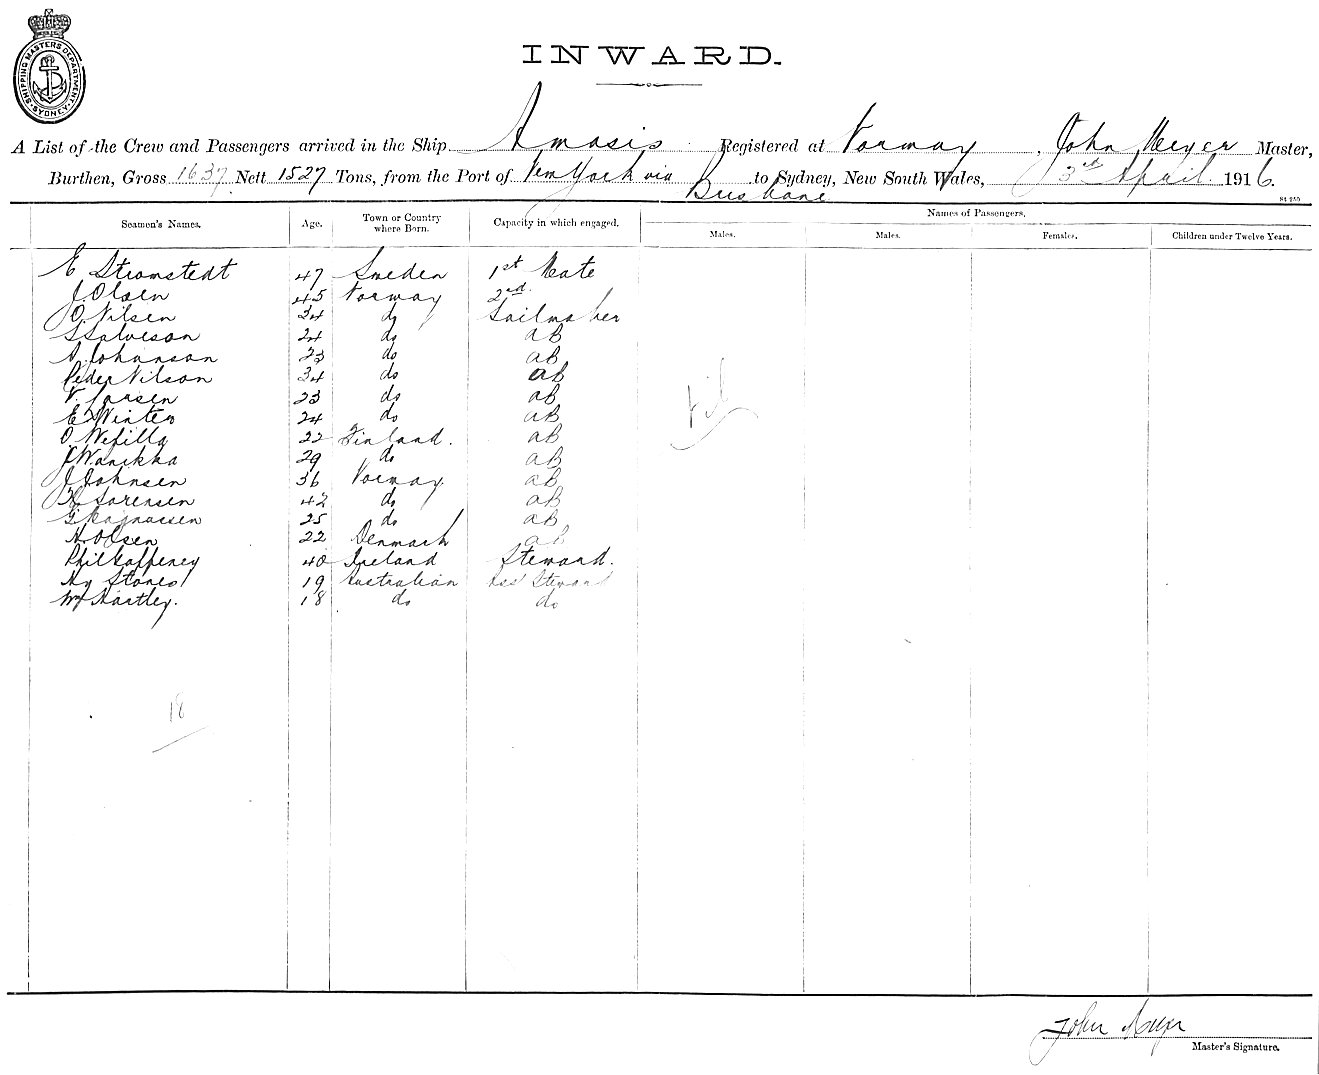 SHIPPING MASTERS DEPARTMENT
SYDNEY
INWARD.
A List of the Crew and Passengers arrived in the Ship Amasis Registered at Norway, John Meyer Master,
Burthen, Gross 1637 Nett 1527 Tons, from the Port of New York via Brisbane to Sydney, New South Wales, 3rd April 1916.
Seamen's Names. Age. Town or Country where Born. Capacity in which engaged. Names of Passengers.
Males. Males. Females. Children under Twelve Years.
E Stromstedt 47 Sweden 1st Mate
J Olsen 45 Norway 2nd
O Nilsen 34 do Sailmaker
S Salveson 24 do AB
A Johanson 23 do AB
Peder Nilson 34 do AB
V. Larsen 23 do AB
E Winter 24 do AB
O 22 Finland. AB
J Wanikka 29 do AB
J Johnsen 36 Norway AB
H Sorensen 42 do AB
G 25 do AB
H Olsen 22 Denmark AB
Phil Gaffeney 40 Ireland Steward.
Hy Stones 19 Australian Ass Steward
Wm Hartley. 18 do do
Nil
18
John Meyer
Master's Signature.